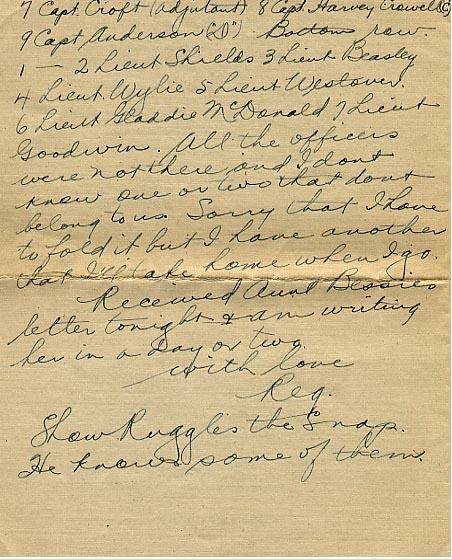 7 Capt. Croft (adjutant) 8 Capt. Harvey Crowell (C)
9 Capt Anderson ("D") Bottom row.
1 — 2 Lieut Shields 3 Lieut Beasley
4 Lieut. Wylie 5 Lieut Westover.
6 Lieut Gladdie McDonald 7 Lieut
Goodwin. All the officers
were not there and I dont
know one or two that dont
belong to us Sorry that I have
to fold it but I have another
that I'll take home when I go.
Received Aunt Bessies
letter tonight & am writing
her in a day or two.
with love
Reg.
Show Ruggles the Snap.
He knows some of them.